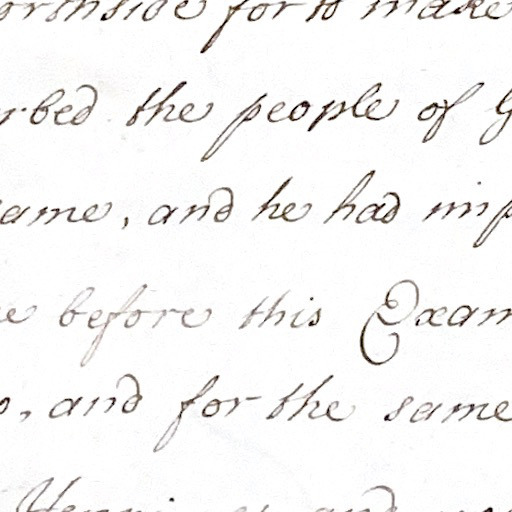 for to make
rbed the people of G
ame, and he had imp
e before this Exam
o, and for the same